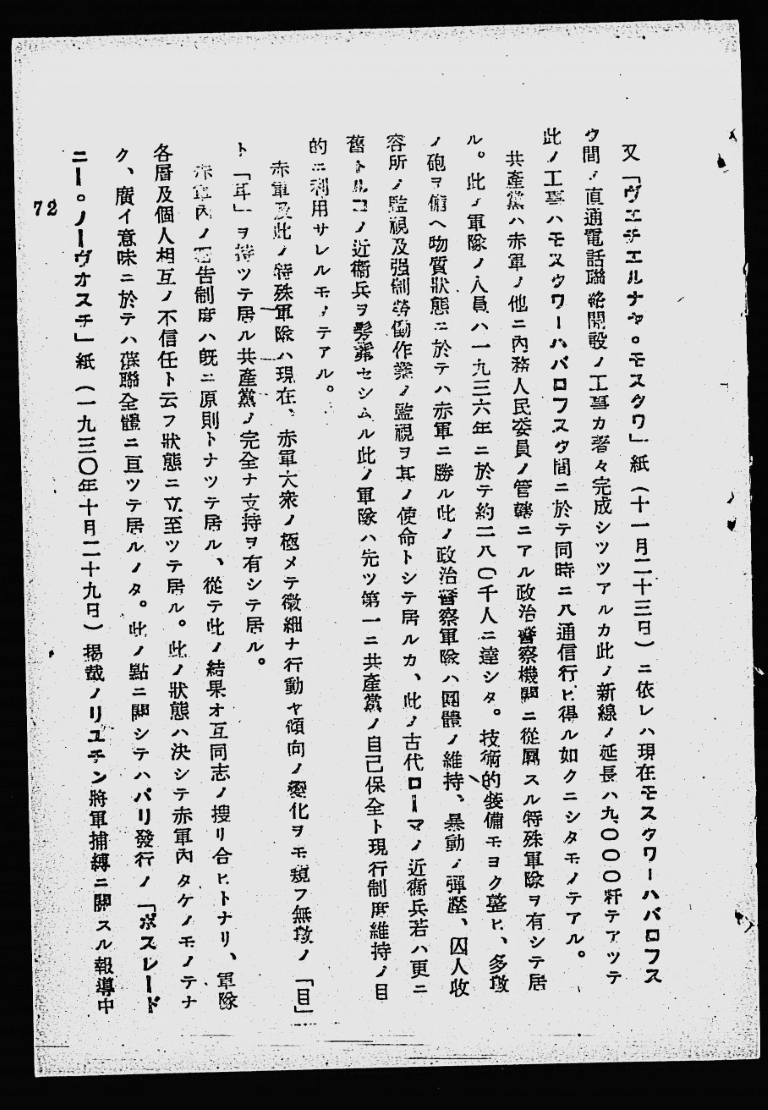 又「ヴエチエルナヤ。モスクワ」紙(十一月二十三日)ニ依レハ現在モスクワーハバロフス
ク間ノ直通電話聯絡開設ノ工事カ着々完成シツツアルカ此ノ新線ノ延長ハ九、〇〇〇粁テアツテ
此ノ工事ハモスクワーハバロフスク間ニ於テ同時ニ八通信行ヒ得ル如クニシタモノテアル。
共產黨ハ赤軍ノ他ニ內務人民委員ノ管轄ニアル政治警察機關ニ從屬スル特殊軍隊ヲ有シテ居
ル。此ノ軍隊ノ人員ハ一九三六年ニ於テ約二八〇千人ニ達シタ。技術的裝備モヨク整ヒ、多數
ノ砲ヲ備ヘ物質狀態ニ於テハ赤軍ニ勝ル此ノ政治警察軍隊ハ團體ノ維持、暴動ノ彈壓、囚人收
容所ノ監視及强制勞働作業ノ監視ヲ其ノ使命トシテ居ルカ、此ノ古代ローマノ近衞兵若ハ更ニ
舊トルコノ近衞兵ヲ髣髴セシムル此ノ軍隊ハ先ツ第一ニ共產黨ノ自己保全ト現行制度維持ノ目
的ニ利用サレルモノテアル。
赤軍及此ノ特殊軍隊ハ現在、赤軍大衆ノ極メテ微細ナ行動ヤ傾向ノ變化ヲモ窺フ無數ノ「目」
ト「耳」ヲ持ツテ居ル共產黨ノ完全ナ支持ヲ有シテ居ル。
赤軍內ノ密告制度ハ旣ニ原則トナツテ居ル、從テ此ノ結果オ互同志ノ搜リ合ヒトナリ、軍隊
各層及個人相互ノ不信任ト云フ狀態ニ立至ツテ居ル。此ノ狀態ハ決シテ赤軍內タケノモノテナ
ク、廣イ意味ニ於テハ蘇聯全體ニ亘ツテ居ルノタ。此ノ點ニ關シテハパリ發行ノ「ポスレード
ニー。ノーヴオスチ」紙(一九三〇年十月二十九日)揭載ノリユチン將軍捕縛ニ關スル報導中
72